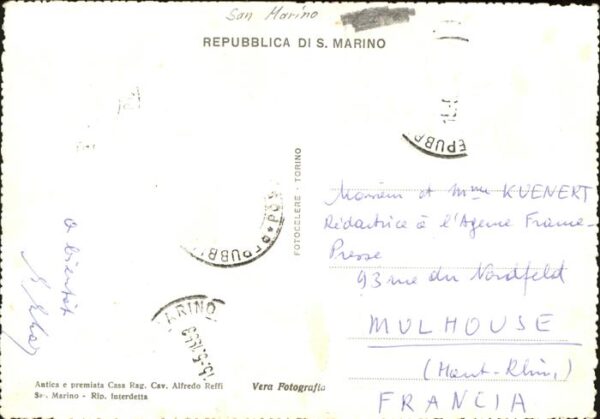 San Marino
REPUBBLICA DI S. MARINO
EPUBB
FOTOCELERE - TORINO
à bientôt
Monsieur et Mme KUENERT
Rédactrice à l'Agence France-
Presse
93 rue du Nordfeld
MULHOUSE
(Haut-Rhin)
FRANCIA
ARINO
Antica e premiata Casa Rag. Cav. Alfredo Reffi
Sr. Marino - Rip. Interdetta
Vera Fotografia